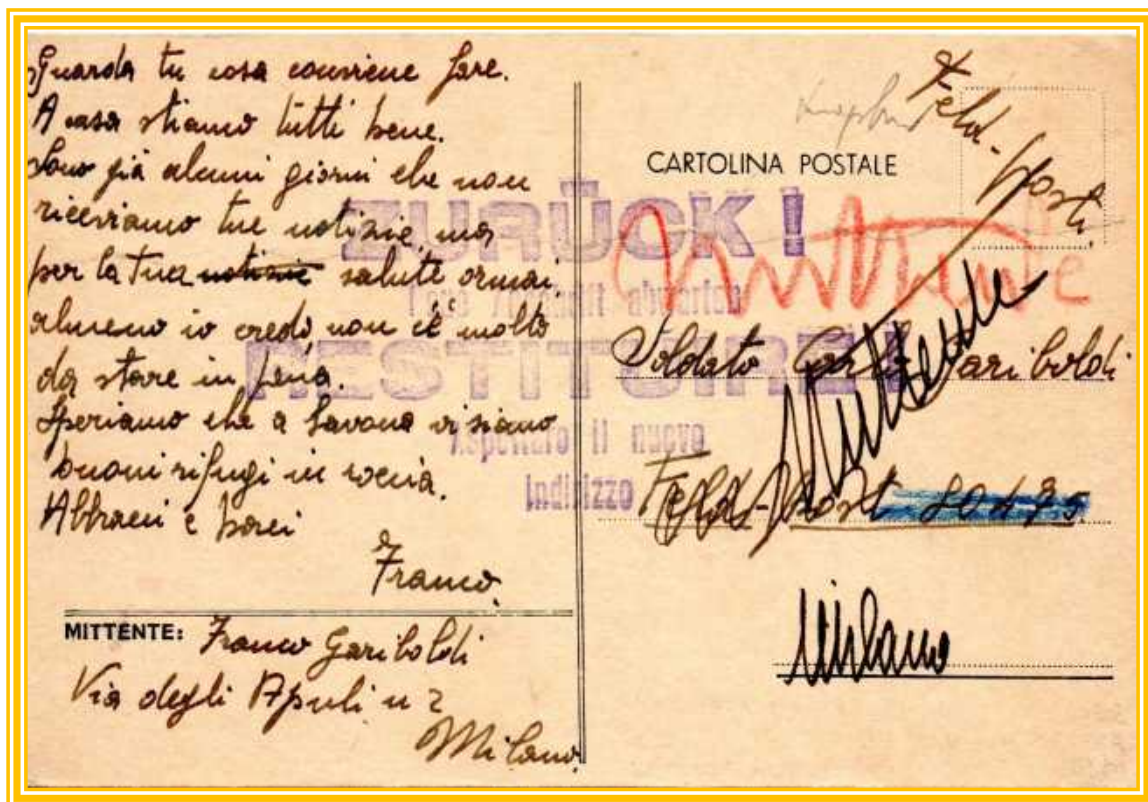 Guarda tu cosa conviene fare.
A casa stiamo tutti bene.
Sono già alcuni giorni che non
riceviamo tue notizie, ma
per la tua notizie salute ormai,
almeno io credo, non c'è molto
da stare in pena.
Speriamo che a Savona vi siano
buoni rifugi in roccia.
Abbracci e baci
Franco.
MITTENTE: Franco Gariboldi
Via degli Apuli n 2
Milano.
Feld-
Post.
CARTOLINA POSTALE
ZURÜCK!
Neue Anschrift abwarten
RESTITUIRE!
Aspettare il nuovo
indirizzo
Mittente
Mittente
Soldato Carlo Gariboldi
Feld-Post 80475.
Milano